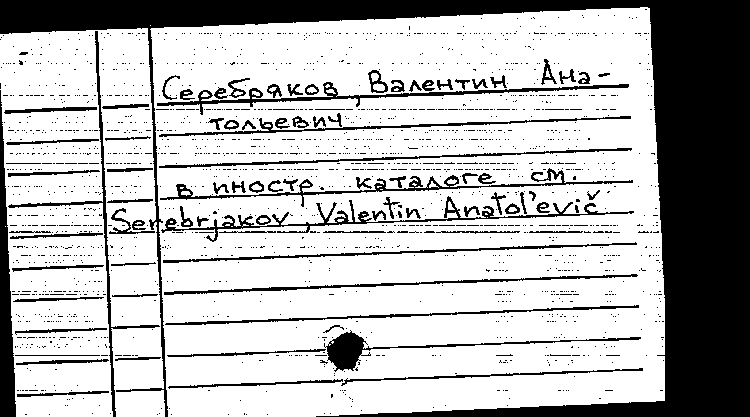 Серебряков, Валентин Ана-
тольевич
в иностр. каталоге см.
Serebrjakov, Valentin Anatol'evič